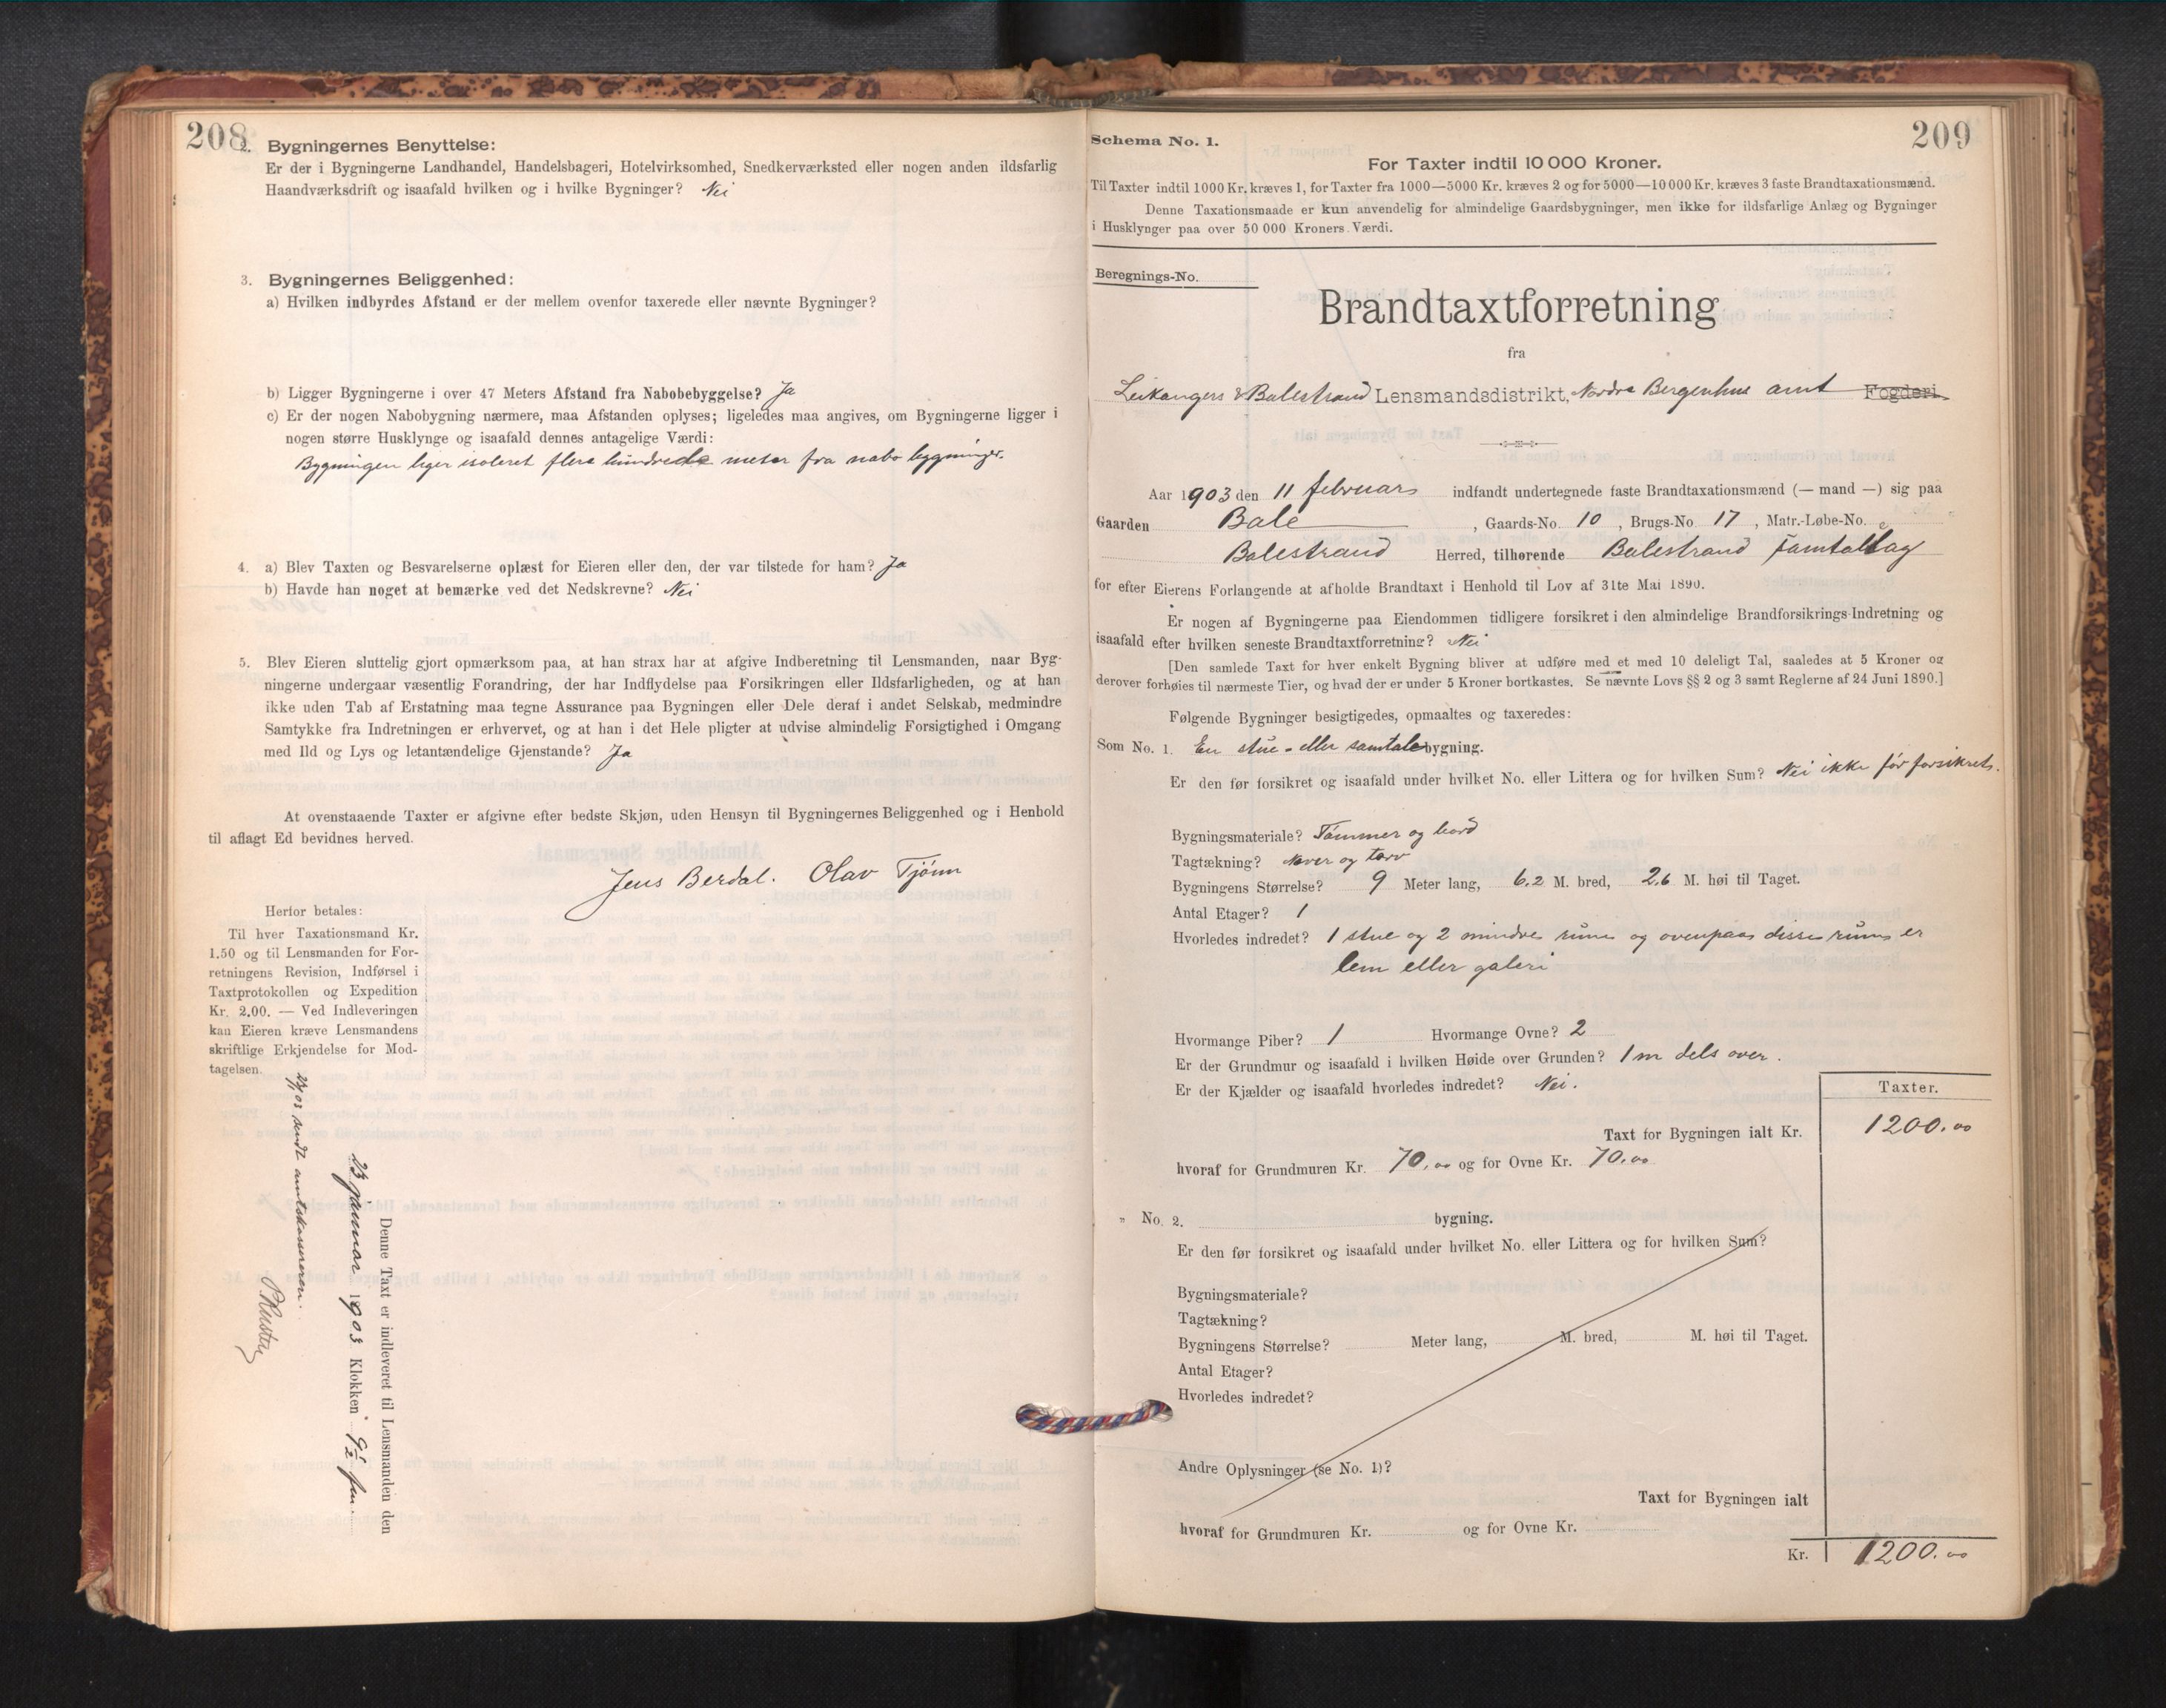 208
2. Bygningernes Benyttelse:
Er der i Bygningerne Landhandel, Handelsbageri, Hotelvirksomhed, Snedkerværksted eller nogen anden ildsfarlig
Haandværksdrift og isaafald hvilken og i hvilke Bygninger? Nei
3. Bygningernes Beliggenhed:
a) Hvilken indbyrdes Afstand er der mellem ovenfor taxerede eller nævnte Bygninger?
b) Ligger Bygningerne i over 47 Meters Afstand fra Nabobebyggelse? Ja
c) Er der nogen Nabobygning nærmere, maa Afstanden oplyses; ligeledes maa angives, om Bygningerne ligger i
nogen større Husklynge og isaafald dennes antagelige Værdi:
Bygningen liger isoleret flere hundrede meter fra nabo bygninger.
4. a) Blev Taxten og Besvarelserne oplæst for Eieren eller den, der var tilstede for ham? Ja
b) Havde han noget at bemærke ved det Nedskrevne? Nei
5. Blev Eieren sluttelig gjort opmærksom paa, at han strax har at afgive Indberetning til Lensmanden, naar Byg-
ningerne undergaar væsentlig Forandring, der har Indflydelse paa Forsikringen eller Ildsfarligheden, og at han
ikke uden Tab af Erstatning maa tegne Assurance paa Bygningen eller Dele deraf i andet Selskab, medmindre
Samtykke fra Indretningen er erhvervet, og at han i det Hele pligter at udvise almindelig Forsigtighed i Omgang
med Ild og Lys og letantændelige Gjenstande? Ja
At ovenstaaende Taxter er afgivne efter bedste Skjøn, uden Hensyn til Bygningernes Beliggenhed og i Henhold
til aflagt Ed bevidnes herved.
Jens Berdal. Olav Tjönn
Herfor betales:
Til hver Taxationsmand Kr.
1.50 og til Lensmanden for For-
retningens Revision, Indførsel i
Taxtprotokollen og Expedition
Kr. 2.00. — Ved Indleveringen
kan Eieren kræve Lensmandens
skriftlige Erkjendelse for Mod-
tagelsen.
Denne Taxt er indleveret til Lensmanden den
23 januar 1903 Klokken 9½ fm.
sendt amtskassereren.
209
Schema No. 1.
For Taxter indtil 10 000 Kroner.
Til Taxter indtil 1000 Kr. kræves 1, for Taxter fra 1000—5000 Kr. kræves 2 og for 5000—10 000 Kr. kræves 3 faste Brandtaxationsmænd.
Denne Taxationsmaade er kun anvendelig for almindelige Gaardsbygninger, men ikke for ildsfarlige Anlæg og Bygninger
i Husklynger paa over 50 000 Kroners Værdi.
Beregnings-No.
Brandtaxtforretning
fra
Leikangers & Balestrand Lensmandsdistrikt, Nordre Bergenhus amt Fogderi.
Aar 1903 den 11 februar indfandt undertegnede faste Brandtaxationsmænd (— mand —) sig paa
Gaarden Bale , Gaards-No. 10 , Brugs-No. 17 , Matr.-Løbe-No.
Balestrand Herred, tilhørende Balestrand samtallag
for efter Eierens Forlangende at afholde Brandtaxt i Henhold til Lov af 31te Mai 1890.
Er nogen af Bygningerne paa Eiendommen tidligere forsikret i den almindelige Brandforsikrings-Indretning og
isaafald efter hvilken seneste Brandtaxtforretning? Nei
[Den samlede Taxt for hver enkelt Bygning bliver at udføre med et med 10 deleligt Tal, saaledes at 5 Kroner og
derover forhøies til nærmeste Tier, og hvad der er under 5 Kroner bortkastes. Se nævnte Lovs §§ 2 og 3 samt Reglerne af 24 Juni 1890.]
Følgende Bygninger besigtigedes, opmaaltes og taxeredes:
Som No. 1. En stue- eller samtalebygning.
Er den før forsikret og isaafald under hvilket No. eller Littera og for hvilken Sum? Nei ikke før forsikrets.
Bygningsmateriale? Tömmer og bord
Tagtækning? Never og torv
Bygningens Størrelse? 9 Meter lang, 6.2 M. bred, 2.6 M. høi til Taget.
Antal Etager? 1
Hvorledes indredet? 1 stue og 2 mindre rum og ovenpaa disse rum er
lem eller galeri
Hvormange Piber? 1 Hvormange Ovne? 2
Er der Grundmur og isaafald i hvilken Høide over Grunden? 1 m dels over.
Er der Kjælder og isaafald hvorledes indredet? Nei.
Taxter.
Taxt for Bygningen ialt Kr. 1200.00
hvoraf for Grundmuren Kr. 70.00 og for Ovne Kr. 70.00
" No. 2. bygning.
Er den før forsikret og isaafald under hvilket No. eller Littera og for hvilken Sum?
Bygningsmateriale?
Tagtækning?
Bygningens Størrelse? Meter lang, M. bred, M. høi til Taget.
Antal Etager?
Hvorledes indredet?
Andre Oplysninger (se No. 1)?
Taxt for Bygningen ialt
hvoraf for Grundmuren Kr. og for Ovne Kr.
Kr. 1200.00